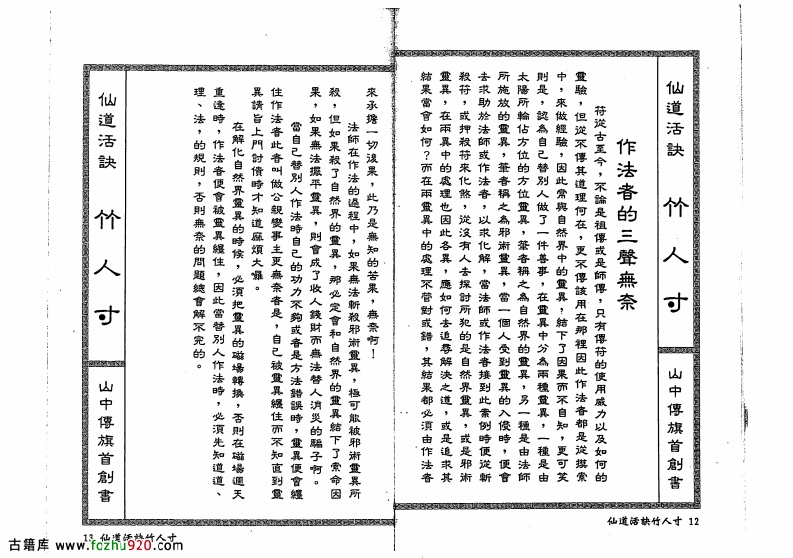 仙道活訣 竹人寸
山中傳旗首創書
作法者的三聲無奈
符從古至今，不論是祖傳或是師傳，只有傳符的使用威力以及如何的
靈驗，但從不傳其道理何在，更不傳該用在那裡因此作法者都是從摸索
中，來做經驗，因此常與自然界中的靈異，結下了因果而不自知，更可笑
則是，認為自己替別人做了一件善事，在靈異中分為兩種靈異，一種是由
太陽所輪佔方位的方位靈異，筆者稱之為自然界的靈異，另一種是由法師
所施放的靈異，筆者稱之為邪術靈異，當一個人受到靈異的入侵時，便會
去求助於法師或作法者，以求化解，當法師或作法者接到此案例時便從斬
殺符，或押殺符來化煞，從沒有人去探討所犯的是自然界靈異，或是邪術
靈異，在兩異中的處理也因此各異，應如何去追尋解決之道，或是追求其
結果當會如何？而在兩靈異中的處理不管對或錯，其結果都必須由作法者
仙道活訣竹人寸 12
來承擔一切後果，此乃是無知的苦果，無奈啊！
法師在作法的過程中，如果無法斬殺邪術靈異，極可能被邪術靈異所
殺，但如果殺了自然界的靈異，那必定會和自然界的靈異結下了索命因
果，如果無法擺平靈異，則會成了收人錢財而無法替人消災的騙子啊。
當自己替別人作法時自己的功力不夠或者是方法錯誤時，靈異便會纏
住作法者此者叫做公親變事主更無奈者是，自己被靈異纏住而不知直到靈
異請旨上門討債時才知道麻煩大囉。
在解化自然界靈異的時候，必須把靈異的磁場轉換，否則在磁場週天
重逢時，作法者便會被靈異纏住，因此當替別人作法時，必須先知道道、
理、法，的規則，否則無奈的問題總會解不完的。
仙道活訣 竹人寸
山中傳旗首創書
13 仙道活訣竹人寸
古籍库 www.fozhu920.com